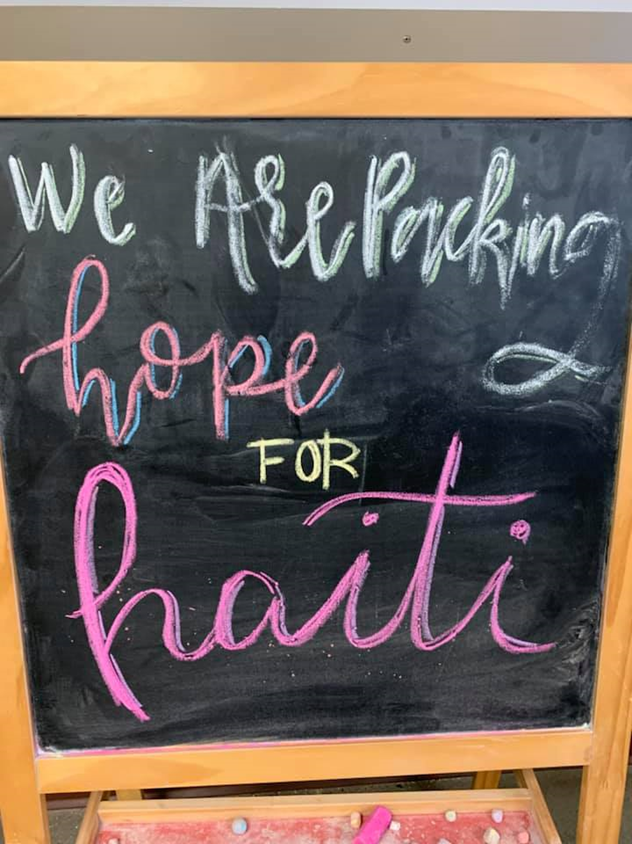 We Are Packing
hope
FOR
haiti